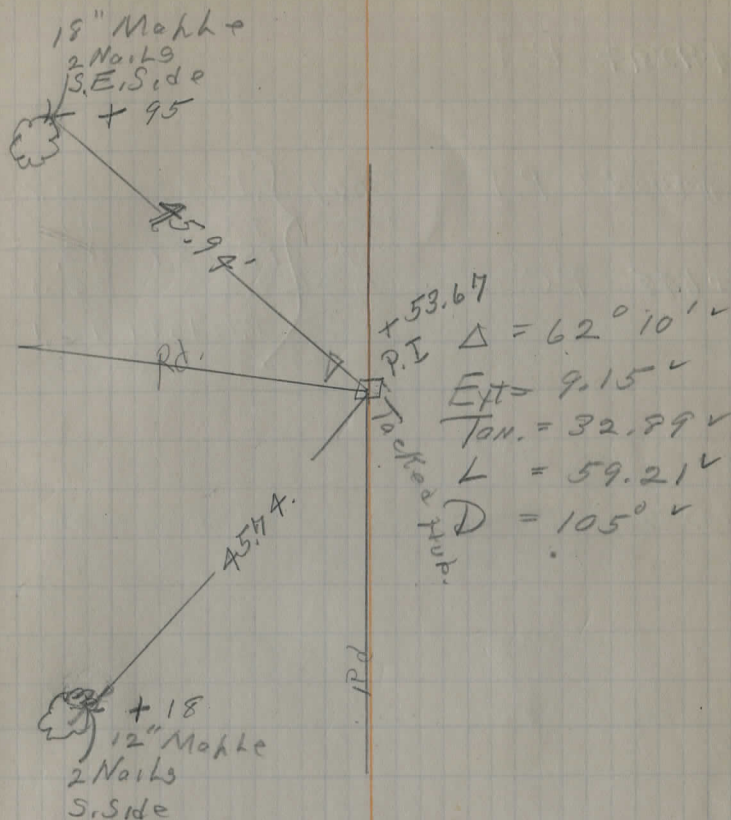 18" Maple
2 Nails
S.E. Side
+ 95
45.94'
+53.67
P.I.
Tacked Hub.
Δ = 62° 10' ✓
Ext = 9.15 ✓
Tan. = 32.89 ✓
L = 59.21 ✓
D = 105° ✓
Rd.
45.74.
Rd
+ 18
12" Maple
2 Nails
S. Side